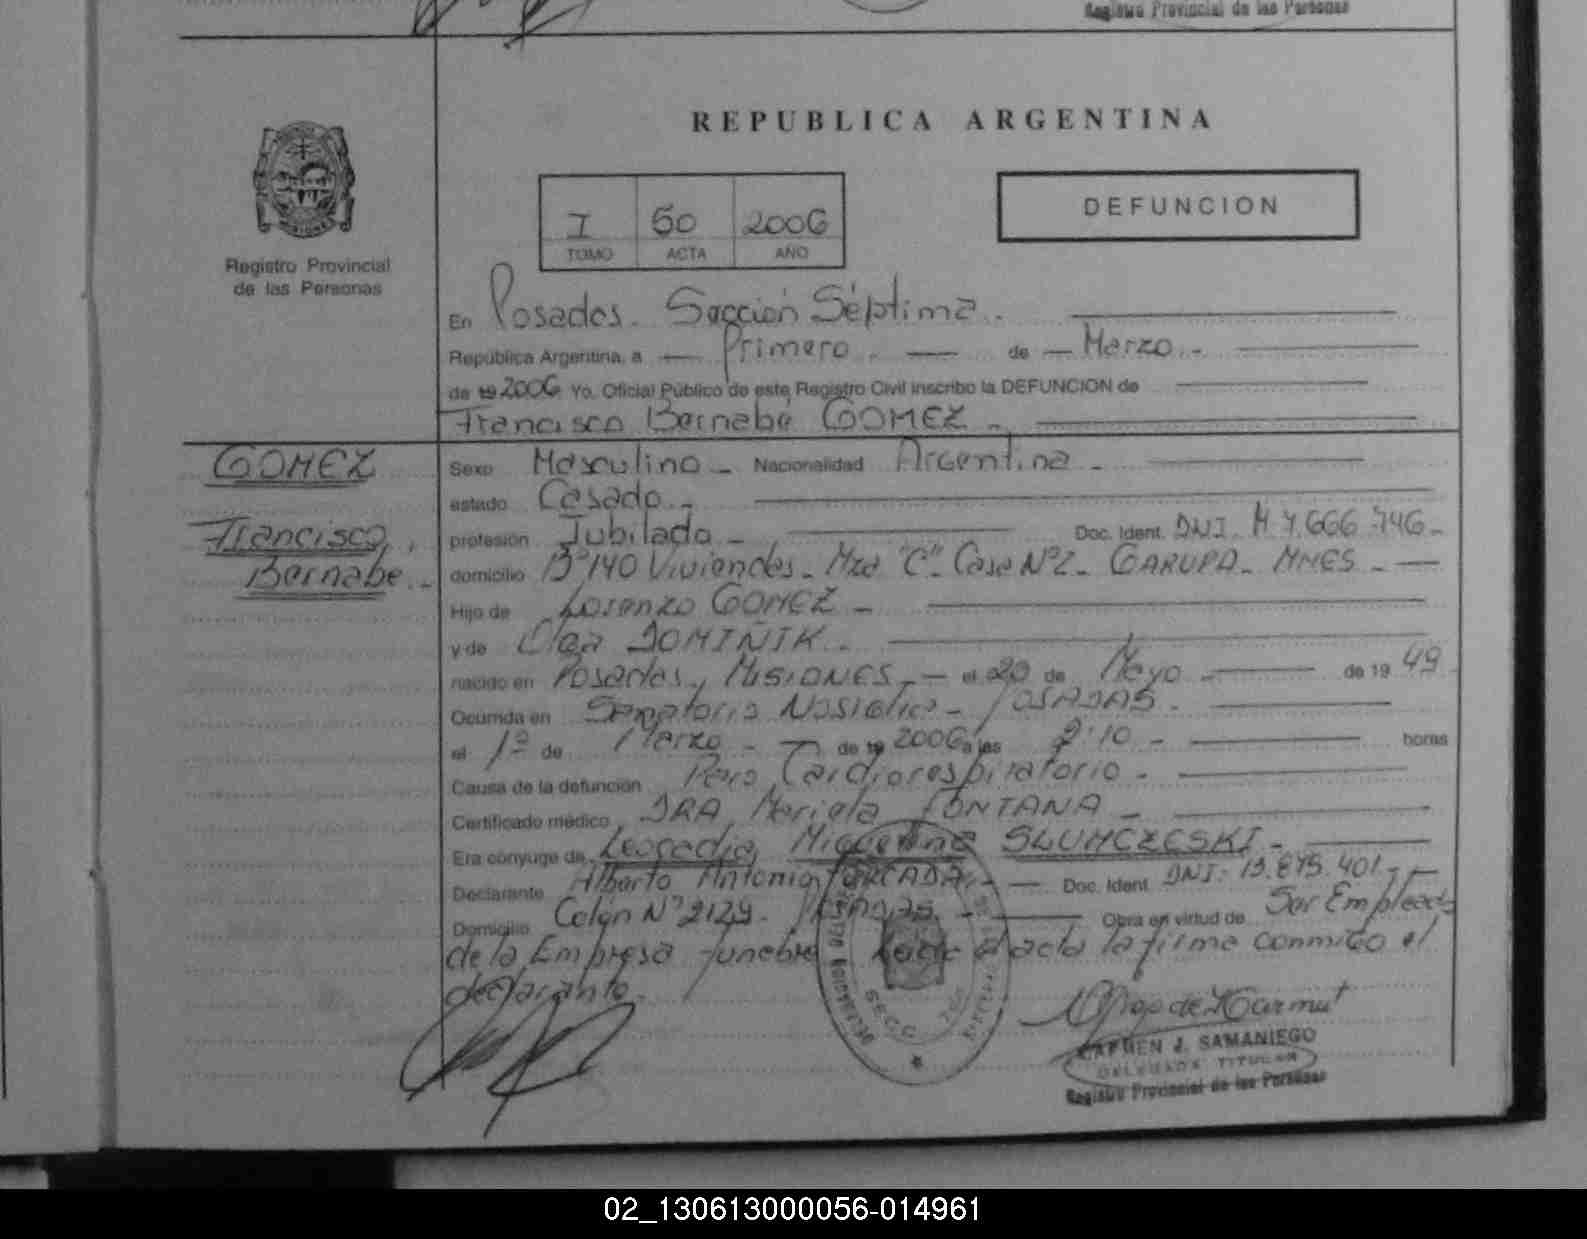 Registro Provincial de las Personas
REPUBLICA ARGENTINA
I 60 2006
TOMO ACTA AÑO
DEFUNCION
MISIONES
Registro Provincial
de las Personas
En Posadas. Sección Séptima.
República Argentina, a — Primero. — de — Marzo.-
de 19 2006 Yo, Oficial Público de este Registro Civil inscribo la DEFUNCION de
Francisco Bernabé GOMEZ -
GOMEZ
Francisco,
Bernabe.-
Sexo Masculino - Nacionalidad Argentina -
estado Casado.-
profesión Jubilado - Doc. Ident. DNI. M 7.666.746-
domicilio B°140 Viviendas- Mza "C"- Casa N°2- GARUPA- MNES -
Hijo de Lorenzo GOMEZ -
y de Olga DOMIÑIK.
nacido en Posadas, MISIONES, - el 20 de Mayo - de 19 49
Ocurrida en Sanatorio - POSADAS.
el 1° de Marzo - de 19 2006 a las :10 - horas
Causa de la defunción Paro Cardiorespiratorio -
Certificado médico DRA Mariela FONTANA -
Era cónyuge de Leocadia Miguelina SLUMCZESKI -
Declarante Alberto Antonio - Doc. Ident. DNI: 13.875.401.-
Domicilio Colón N° 2129. POSADAS. - Obra en virtud de Ser Empleado
de la Empresa funebre el acta la firma conmigo el
declarante.
SECC. 7
CARMEN J. SAMANIEGO
DELEGADA TITULAR
Registro Provincial de las Personas
02_130613000056-014961